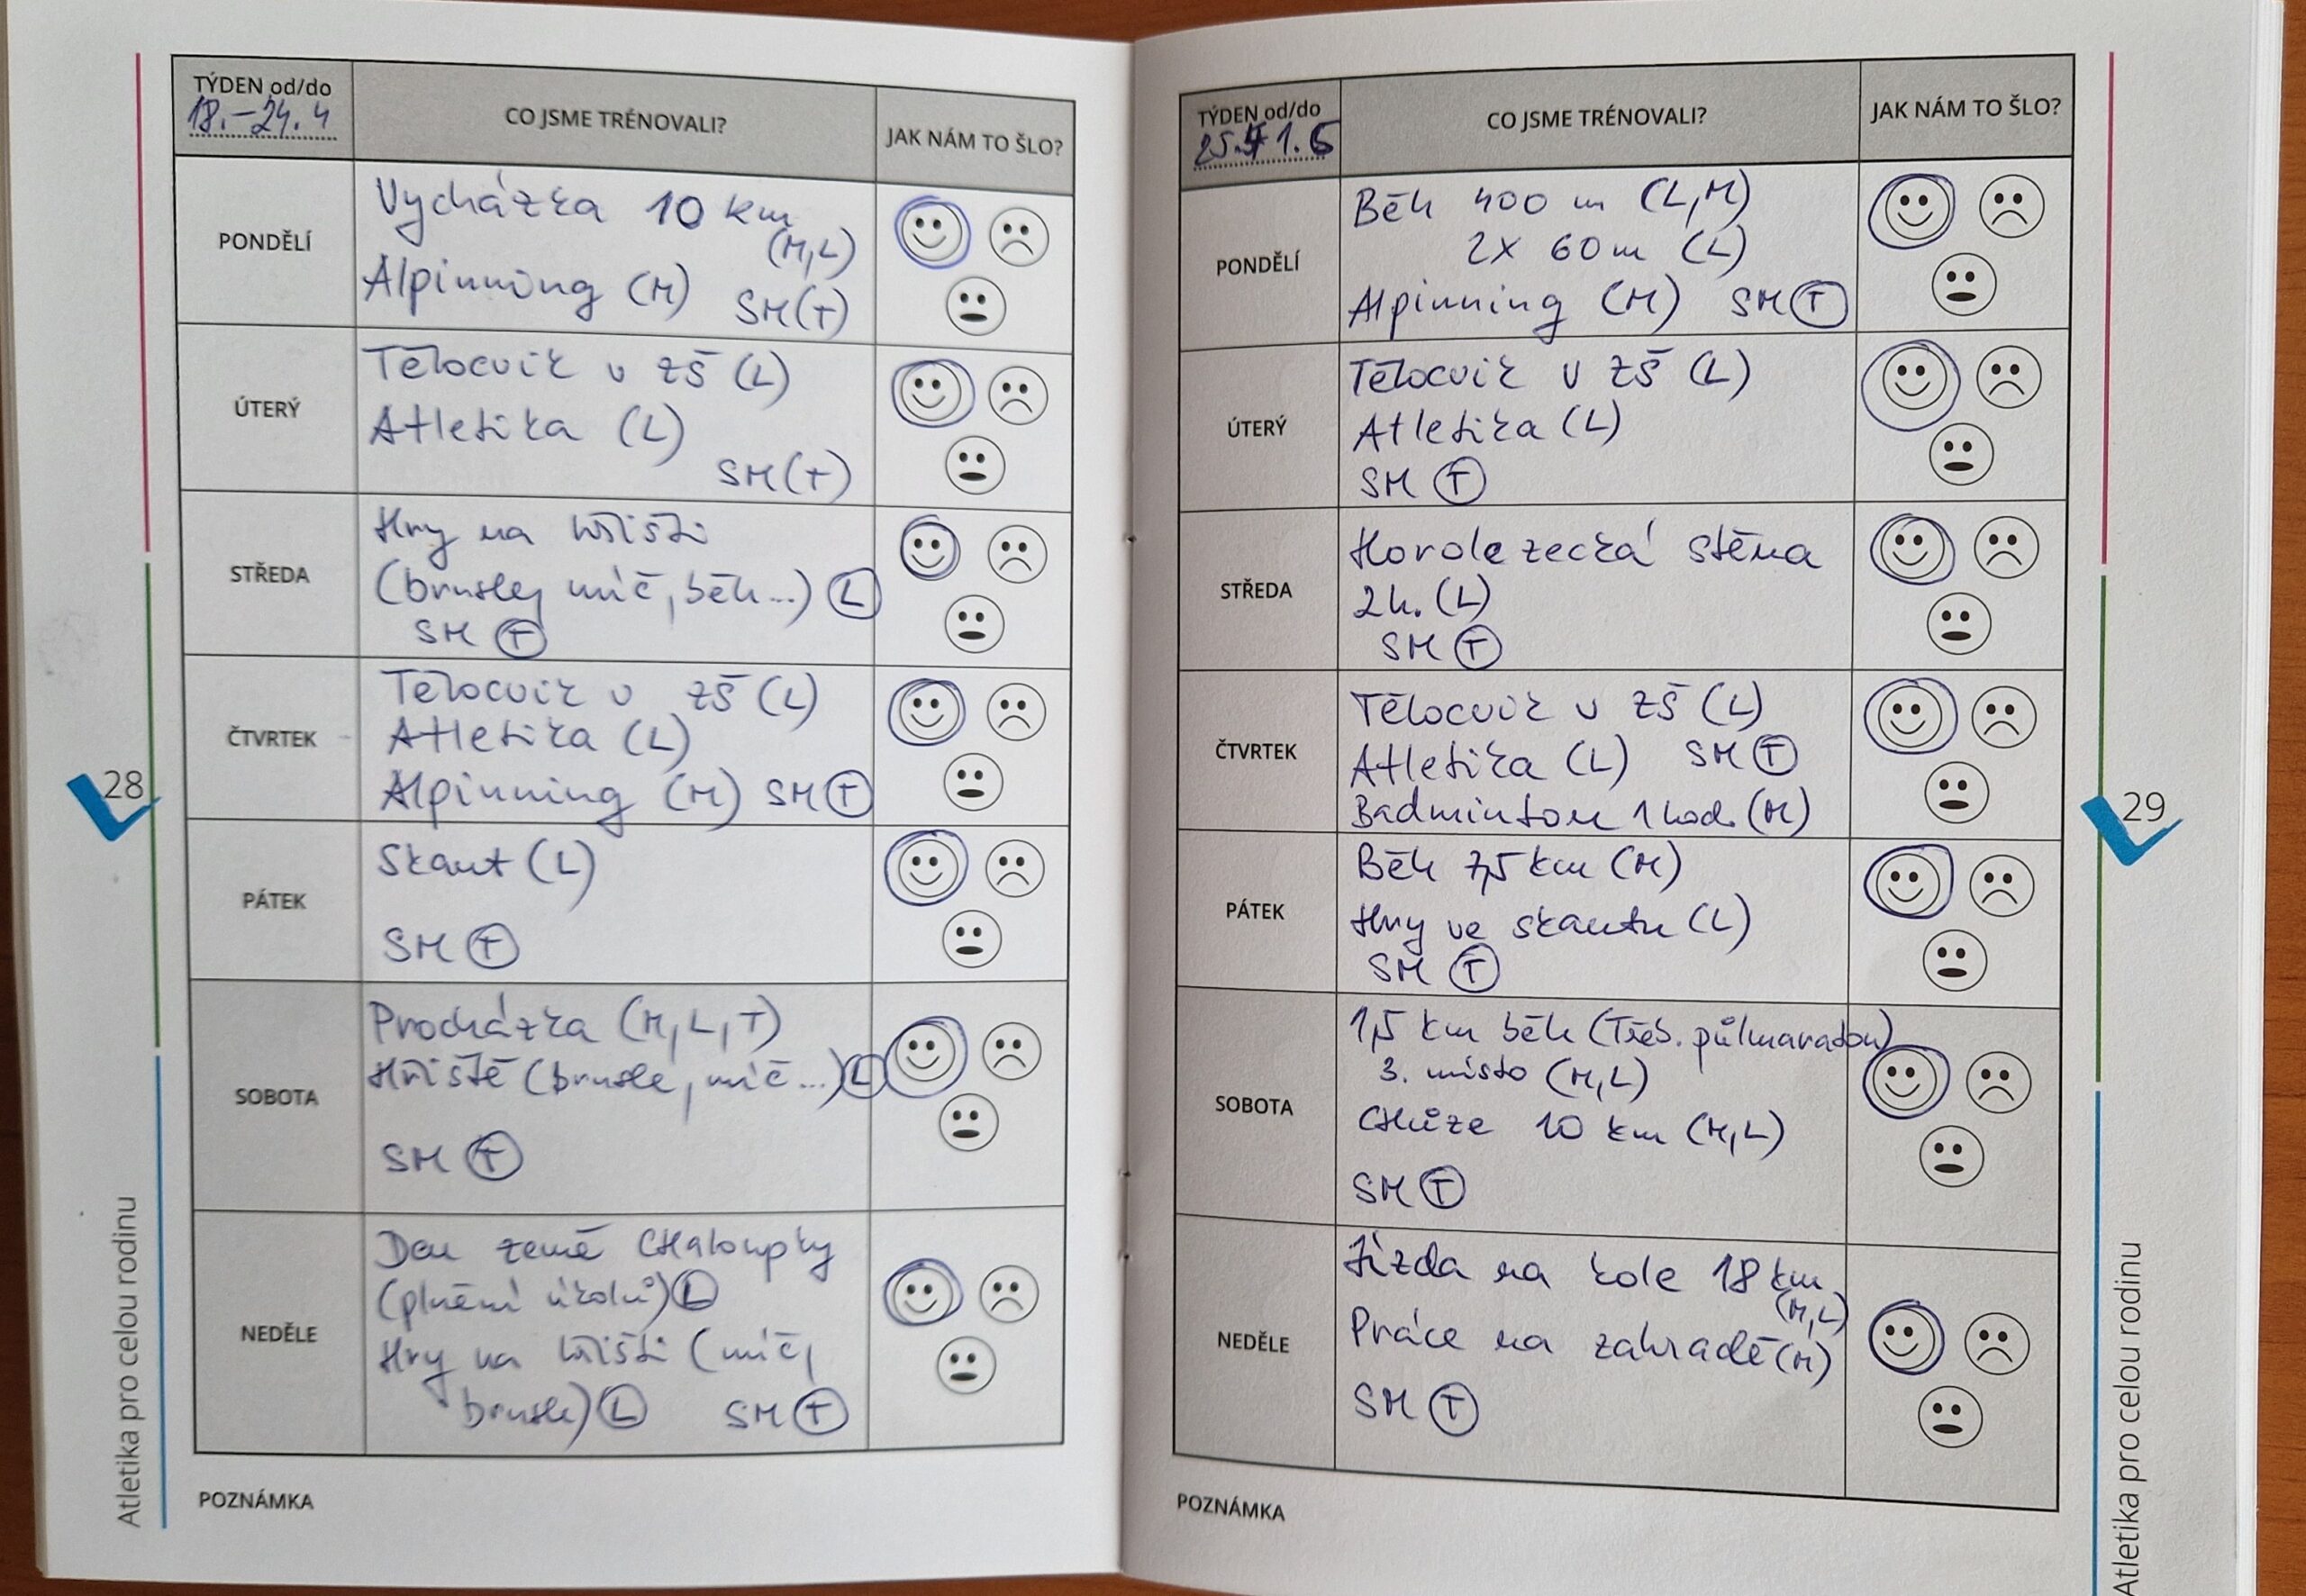 TÝDEN od/do
18.-24.4
CO JSME TRÉNOVALI?
JAK NÁM TO ŠLO?
PONDĚLÍ
Vycházka 10 km
(M,L)
Alpinning (M) SM(T)
ÚTERÝ
Tělocvik v ZŠ (L)
Atletika (L)
SM(T)
STŘEDA
Hry na hřišti
(brusle, míč, běh...) (L)
SM (T)
ČTVRTEK
Tělocvik v ZŠ (L)
Atletika (L)
Alpinning (M) SM (T)
PÁTEK
Skaut (L)
SM (T)
SOBOTA
Procházka (M,L,T)
Hřiště (brusle, míč...) (L)
SM (T)
NEDĚLE
Den země CHaloupky
(plnění úkolů) (L)
Hry na hřišti (míč,
brusle) (L) SM (T)
POZNÁMKA
28
Atletika pro celou rodinu
TÝDEN od/do
25.4 1.5
CO JSME TRÉNOVALI?
JAK NÁM TO ŠLO?
PONDĚLÍ
Běh 400 m (L,M)
2x 60m (L)
Alpinning (M) SM (T)
ÚTERÝ
Tělocvik v ZŠ (L)
Atletika (L)
SM (T)
STŘEDA
Horolezecká stěna
2h. (L)
SM (T)
ČTVRTEK
Tělocvik v ZŠ (L)
Atletika (L) SM (T)
Badminton 1 hod. (M)
PÁTEK
Běh 7,5 km (M)
Hry ve skautu (L)
SM (T)
SOBOTA
1,5 km běh (Třeb. půlmaraton)
3. místo (M,L)
CHůze 10 km (M,L)
SM (T)
NEDĚLE
Jízda na kole 18 km
(M,L)
Práce na zahradě (M)
SM (T)
POZNÁMKA
29
Atletika pro celou rodinu